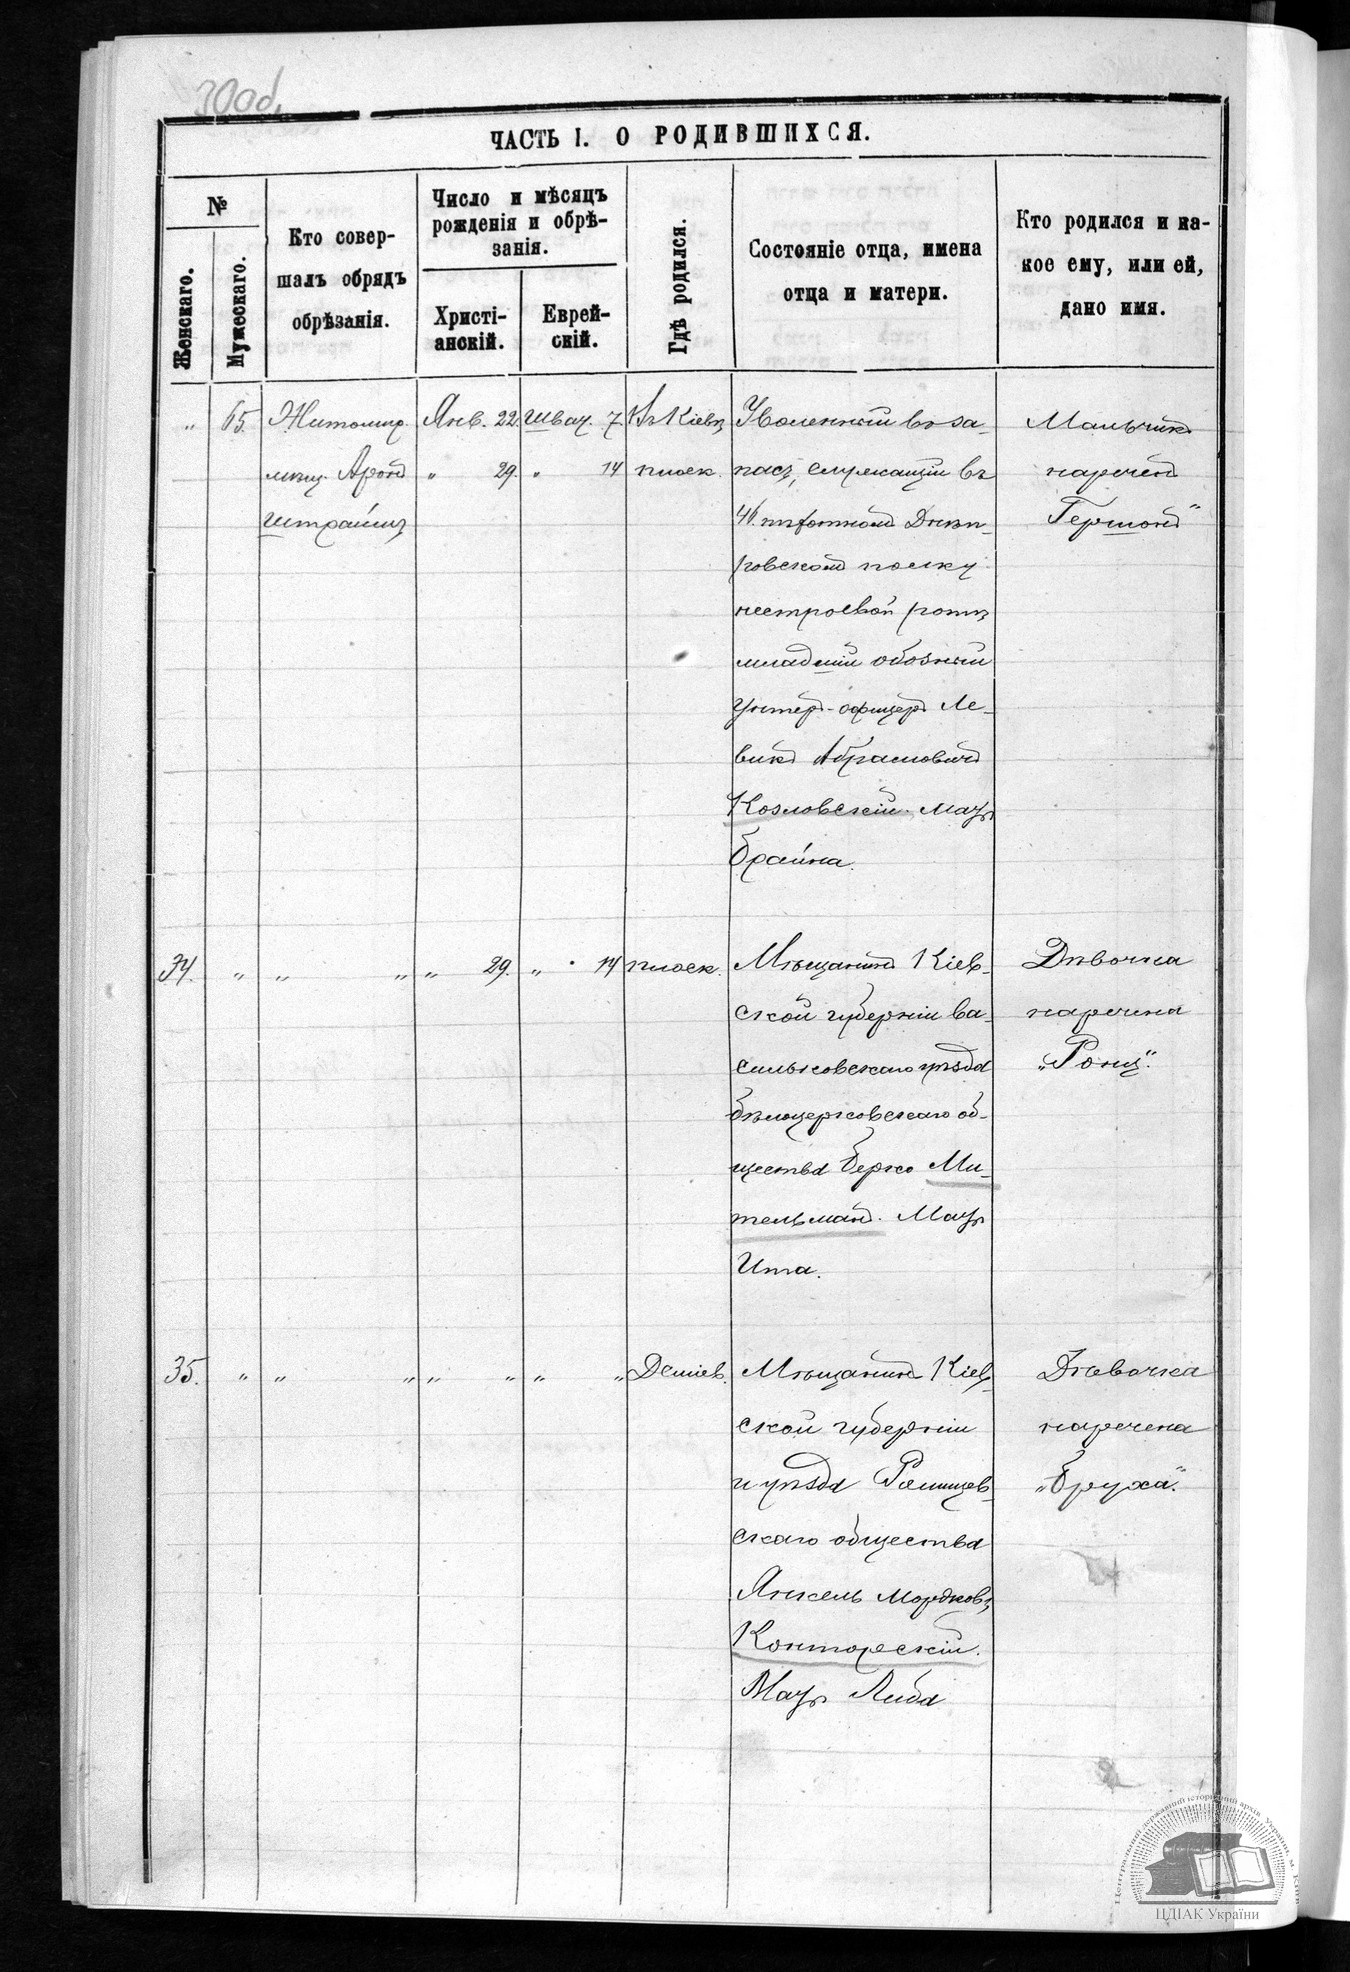 30об.
ЧАСТЬ I. О РОДИВШИХСЯ.
№
Женскаго.
Мужескаго.
Кто совер-
шалъ обрядъ
обрѣзанія.
Число и мѣсяцъ
рожденія и обрѣ-
занія.
Христі-
анскій.
Еврей-
скій.
Гдѣ родился.
Состояніе отца, имена
отца и матери.
Кто родился и ка-
кое ему, или ей,
дано имя.
„ 65. Житомир. Янв. 22. Шват. 7 Въ Кіевѣ Уволенный въ за-
мѣщ. Аронъ „ 29. „ 14 плоск. пасъ, служащій въ
Штраймъ 46 пѣхотномъ Днѣп-
ровскомъ полку
нестроевой роты
младшій обозный
унтеръ-офицеръ Ле-
викъ Абрамовичъ
Козловскій. Мать
Брайна.
Мальчикъ
нареченъ
„Гершонъ“
34. „ „ „ „ 29. „ 14 плоск. Мѣщанинъ Кіев-
ской губерніи Ва-
сильковскаго уѣзда
бѣлоцерковскаго об-
щества Берко Ми-
тельманъ. Мать
Ита.
Дѣвочка
наречена
„Роня“.
35. „ „ „ „ „ „ „ Деміев. Мѣщанинъ Кіев-
ской губерніи
и уѣзда
скаго общества
Янкель Мордковъ
Конторскій.
Мать Либа
Дѣвочка
наречена
„Бруха“.
Центральний державний історичний архів України, м. Київ
ЦДІАК України